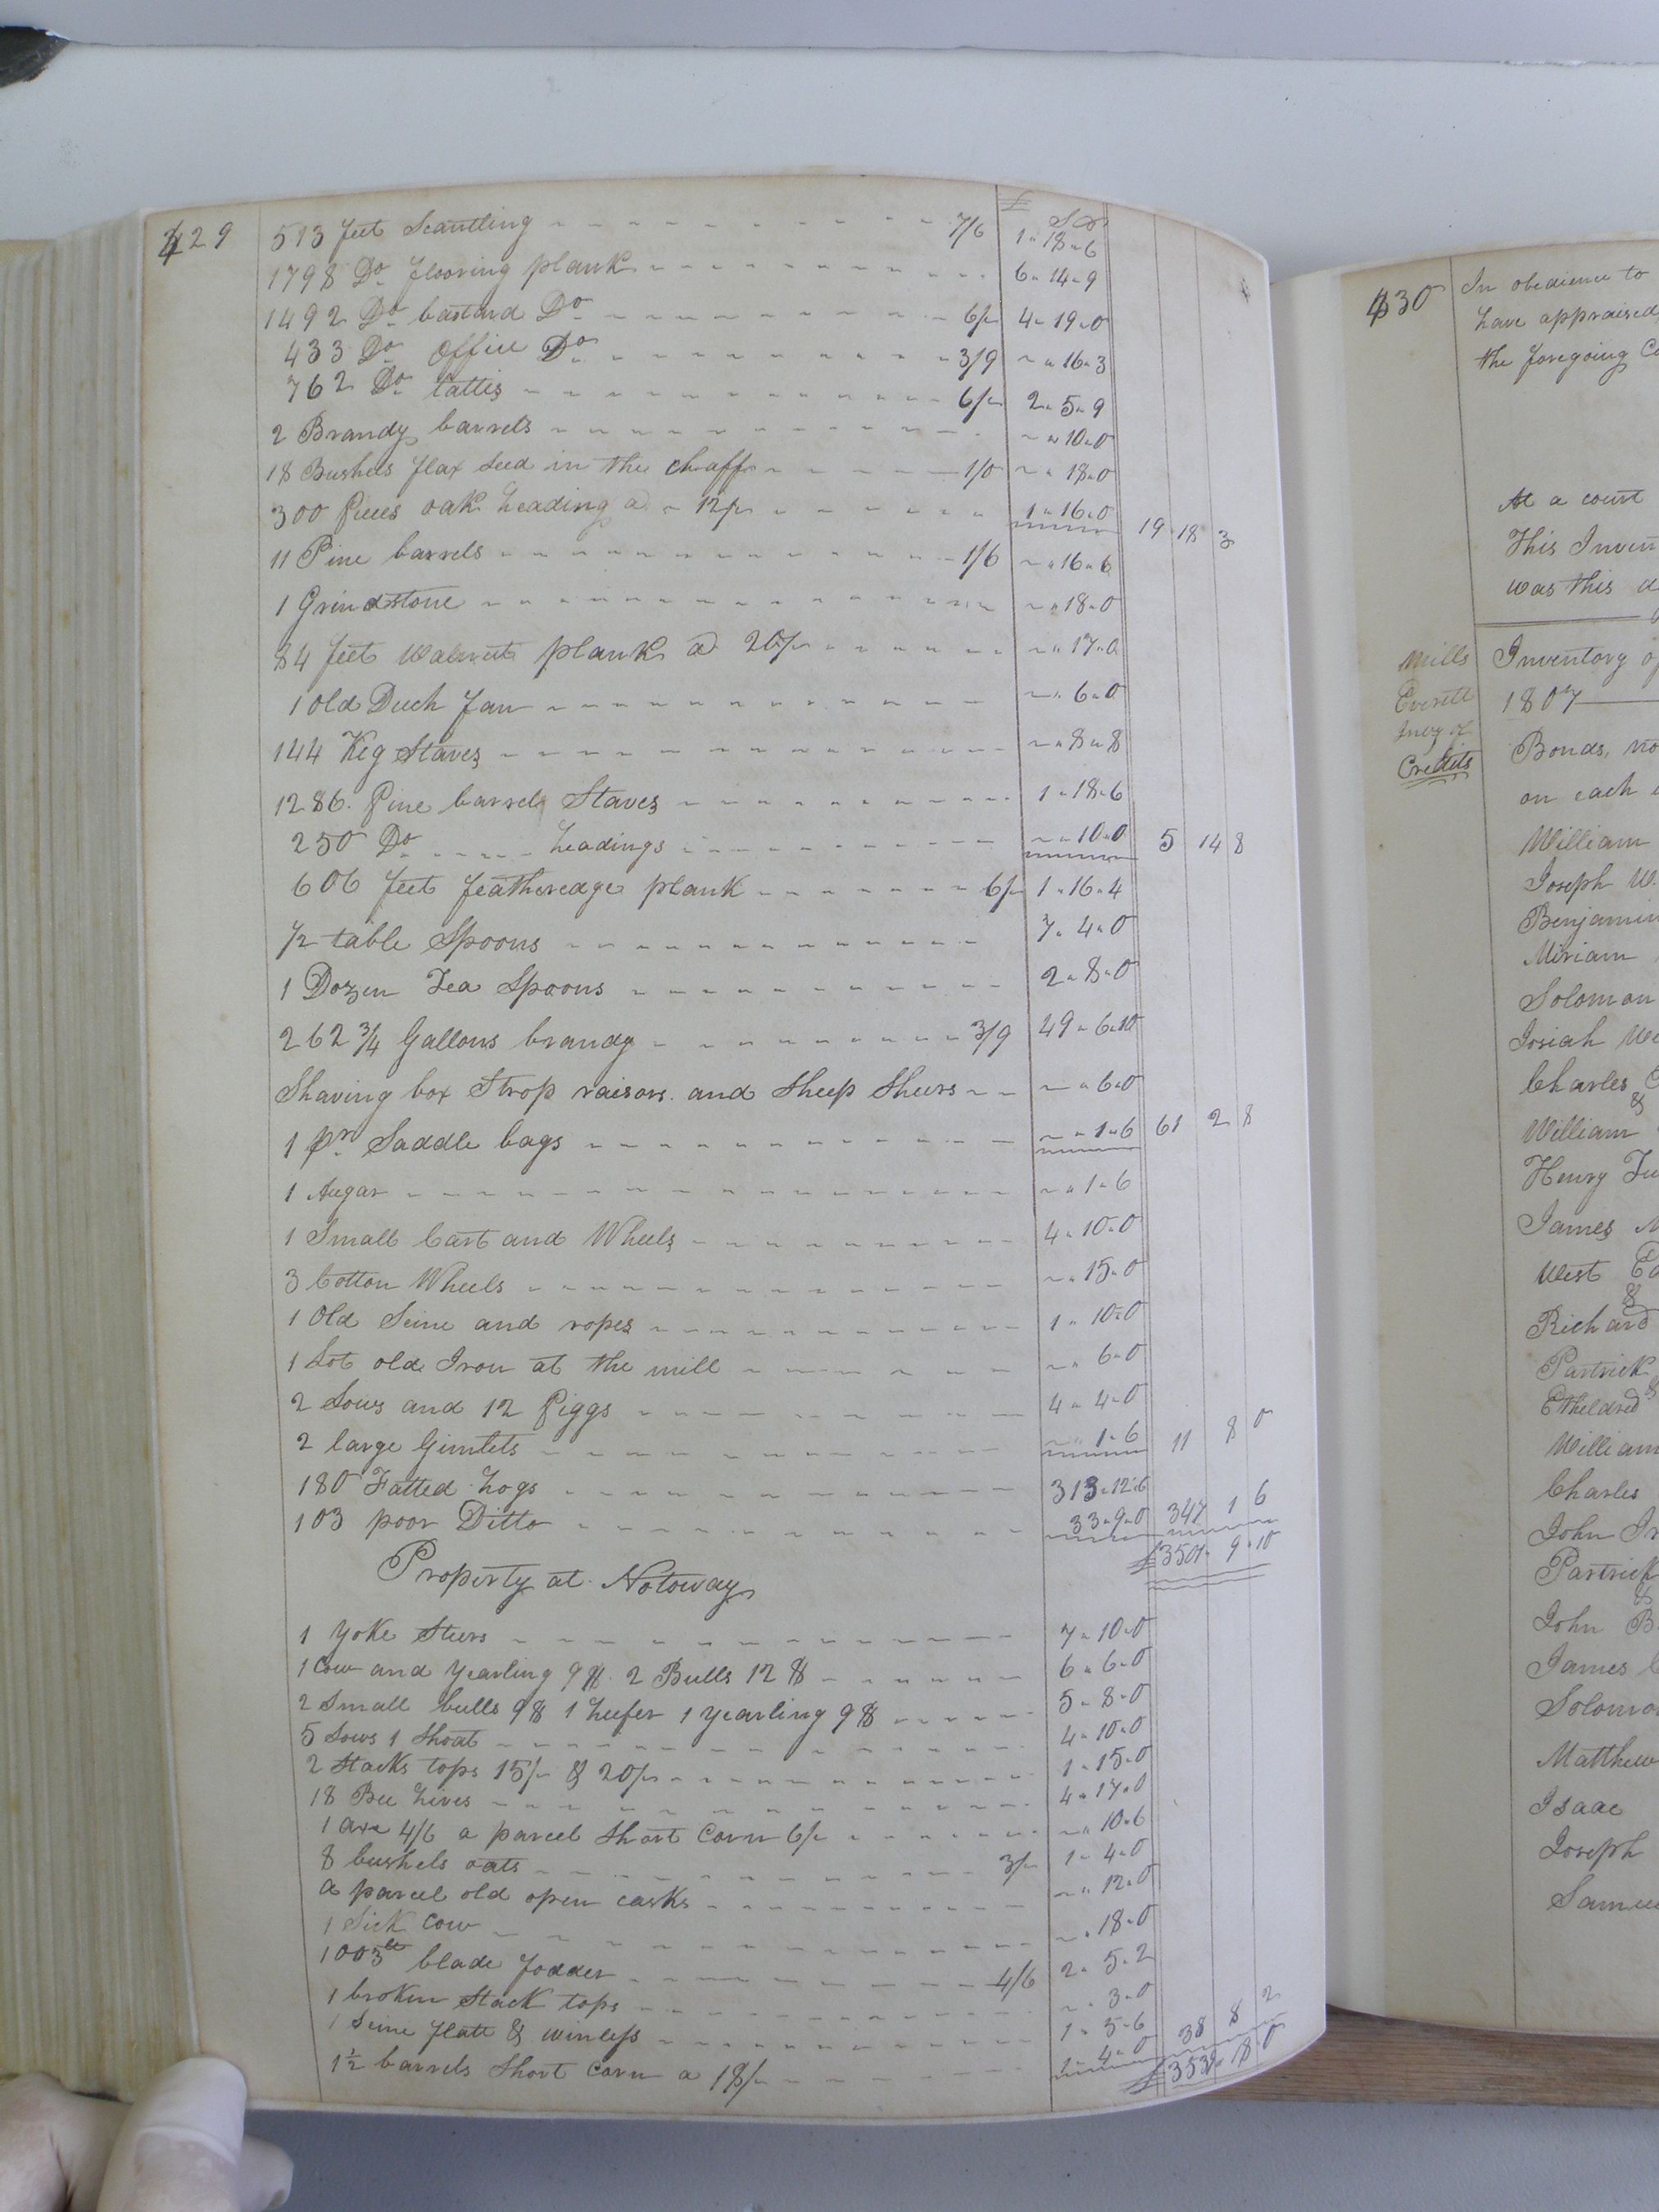 429
£ S D
513 feet Scantling 7/6 1"18"6
1798 Do flooring plank 6"14"9
1492 Do bastard Do 6/ 4"19"0
433 Do Office Do 3/9 "16"3
762 Do lattis 6/ 2"5"9
2 Brandy barrels "10"0
18 Bushels flax Seed in the chaff 1/0 "18"0
300 Pieces oak heading a 12/ 1"16"0 19 18 3
11 Pine barrels 1/6 "16"6
1 Grindstone "18"0
84 feet walnut plank a 20/ "17"0
1 Old Duch fan "6"0
144 Keg Staves "8"8
1286 Pine barrel Staves 1"18"6
250 Do headings "10"0 5 14 8
606 feet featheredge plank 6/ 1"16"4
1/2 table Spoons 7"4"0
1 Dozen Tea Spoons 2"8"0
262 3/4 Gallons brandy 3/9 49"6"10
Shaving box Strop raisors and Sheep Shears "6"0
1 pr Saddle bags "1"6 61 2 8
1 Augar "1"6
1 Small Cart and Wheels 4"10"0
3 Cotton Wheels "15"0
1 Old Seine and ropes 1"10"0
1 Lot old Iron at the mill "6"0
2 Sows and 12 Piggs 4"4"0
2 large Gimlets "1"6 11 8 0
180 Fatted hogs 313"12"6
103 poor Ditto 33"9"0 347 1 6
£3501"9"10
Property at Notoway
1 Yoke Steers 7"10"0
1 Cow and Yearling 9$ 2 Bulls 12$ 6"6"0
2 Small bulls 9$ 1 heefer 1 yearling 9$ 5"8"0
5 Sows 1 Shoat 4"10"0
2 Stacks tops 15/ & 20/ 1"15"0
18 Bee hives 4"17"0
1 axe 4/6 a parcel Short Corn 6/ "10"6
8 bushels oats 3/ 1"4"0
a parcel old open casks "12"0
1 Sick Cow "18"0
1003 lb blade fodder 4/6 2"5"2
1 broken Stack tops "3"0
1 Seine flatt & winless 1"5"6
1 1/2 barrels Short Corn a 18/ 38 8 2
430
In obedience to
have appraised
the foregoing
At a court
This Inven
was this
Mills
Everitt
Invy of
Credits
Inventory of
1807
Bonds, no
on each
William
Joseph W.
Benjamin
Miriam
Solomon
Josiah
Charles
&
William
Henry
James
West
&
Richard
Partrick
Etheldred
William
Charles
John
Partrick
&
John B
James
Solomon
Matthew
Isaac
Joseph
Samue